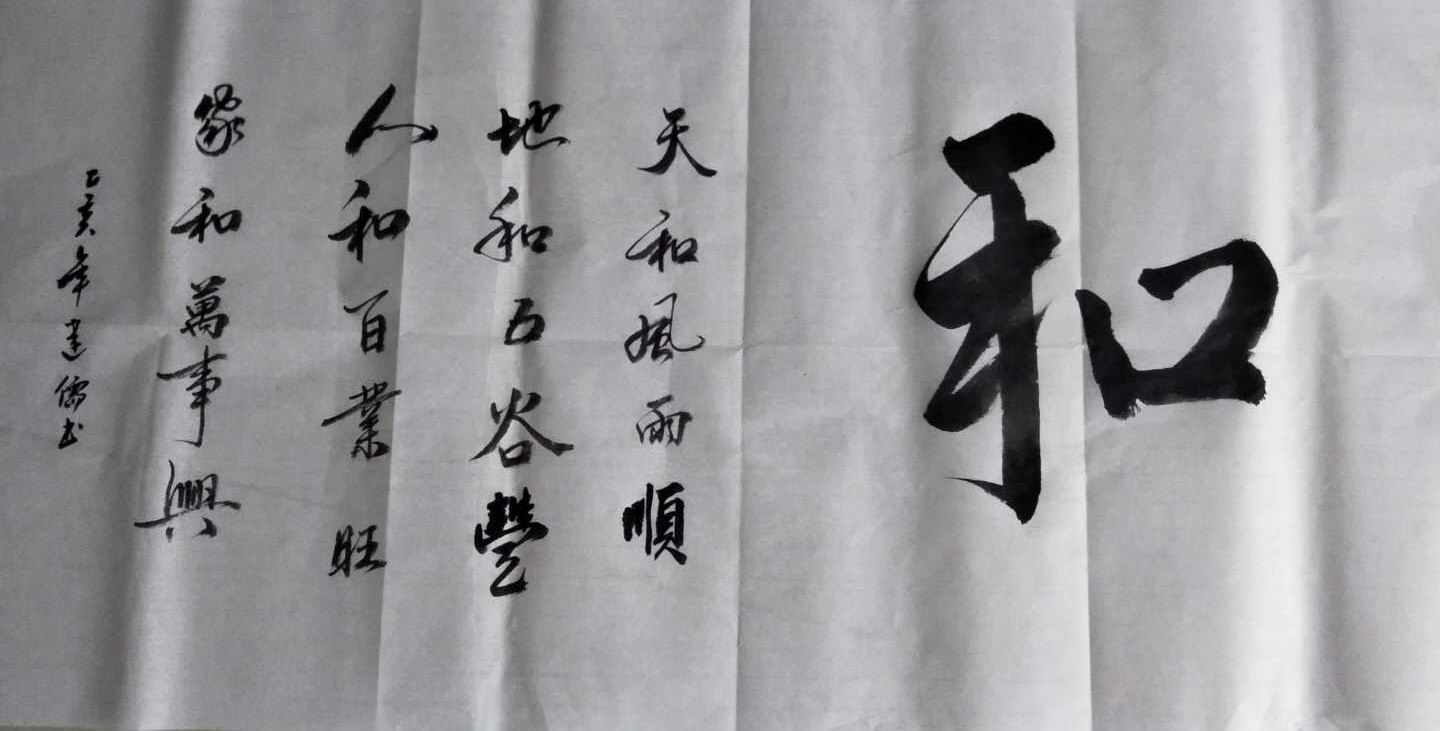 和
天和風雨順
地和五谷豐
人和百業旺
家和萬事興
己亥年建儒书